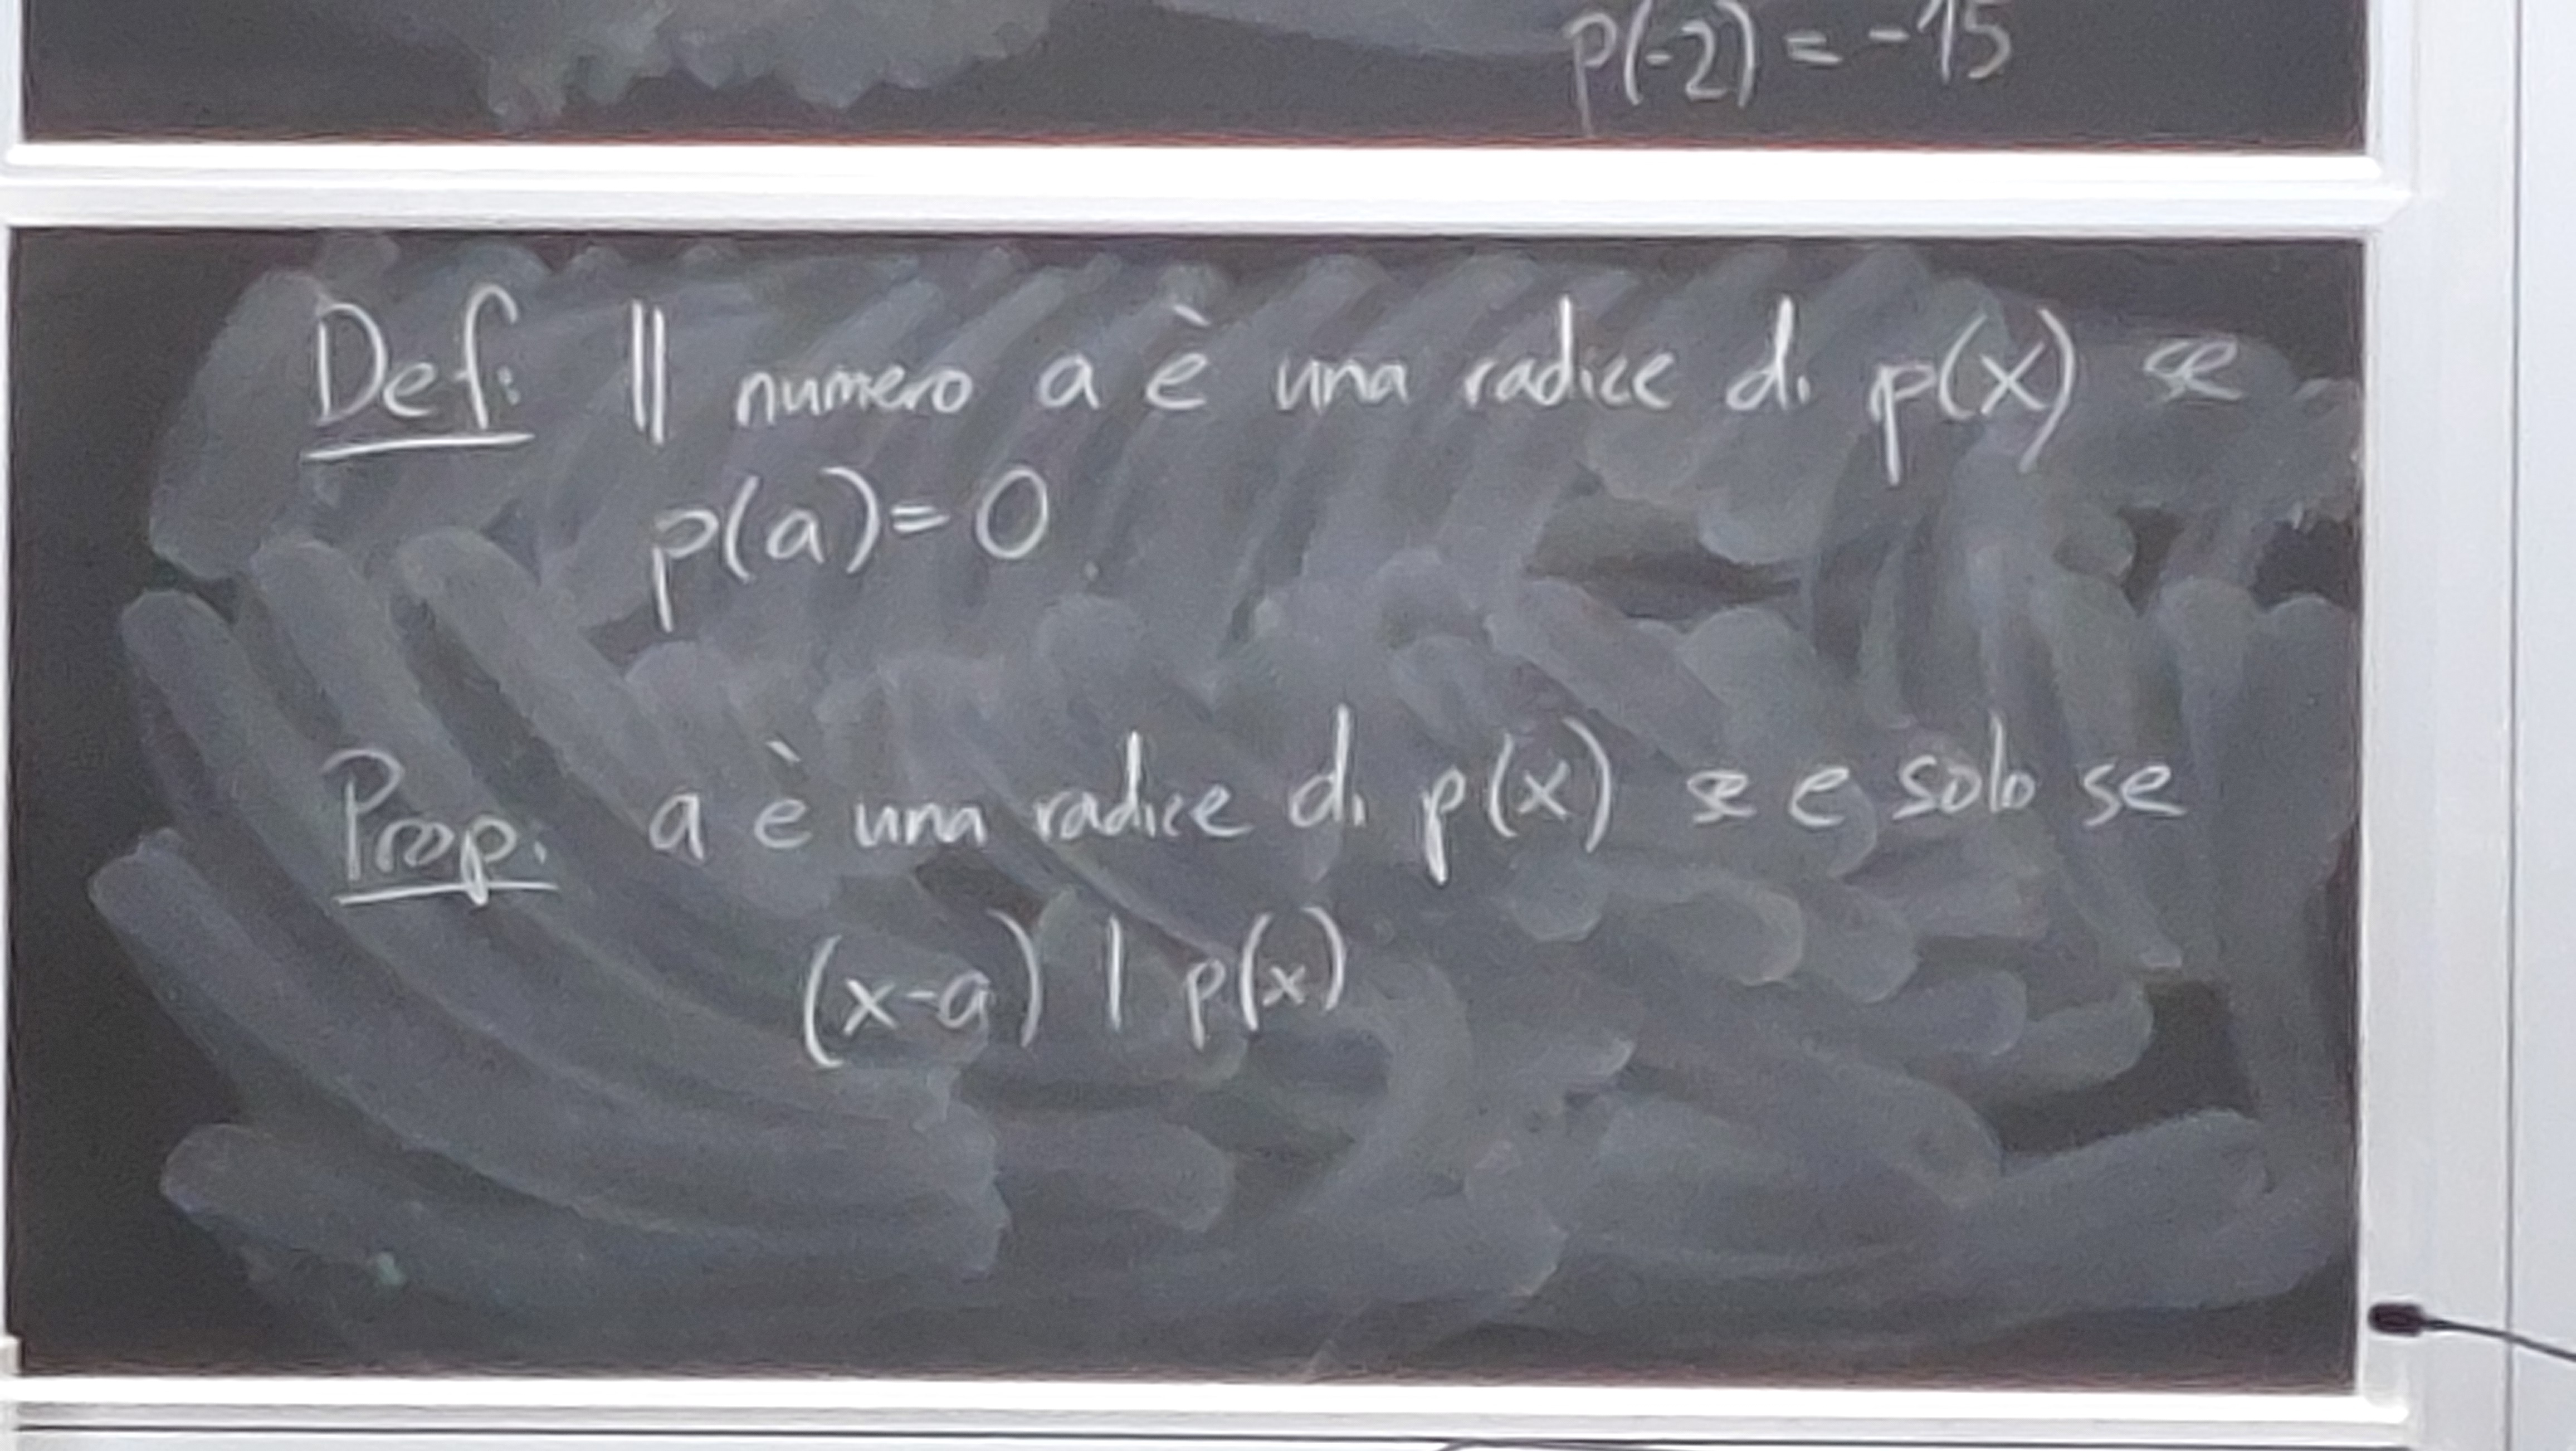 p(-2) = -15
Def: Il numero a è una radice di p(x) se
p(a) = 0.
Prop. a è una radice di p(x) se e solo se
(x-a) | p(x)